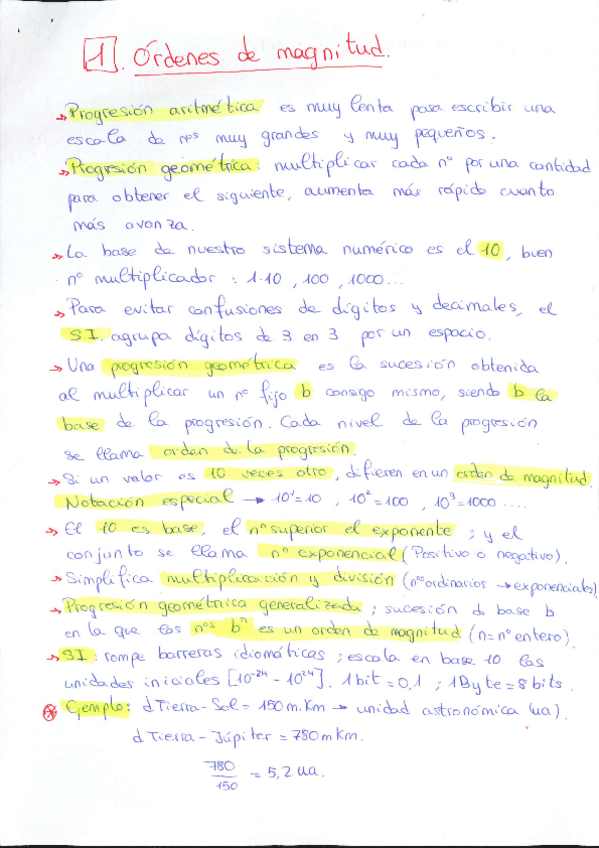 1. Órdenes de magnitud.
→ Progresión aritmética es muy lenta para escribir una
escala de nºs muy grandes y muy pequeños.
→ Progresión geométrica: multiplicar cada nº por una cantidad
para obtener el siguiente, aumenta más rápido cuanto
más avanza.
→ La base de nuestro sistema numérico es el 10, buen
nº multiplicador : 1·10 , 100 , 1000...
→ Para evitar confusiones de dígitos y decimales, el
S.I. agrupa dígitos de 3 en 3 por un espacio.
→ Una progresión geométrica es la sucesión obtenida
al multiplicar un nº fijo b consigo mismo, siendo b la
base de la progresión. Cada nivel de la progresión
se llama orden de la progresión.
→ Si un valor es 10 veces otro, difieren en un orden de magnitud.
Notación especial → 10¹=10 , 10²=100 , 10³=1000 .....
→ El 10 es base, el nº superior el exponente ; y el
conjunto se llama nº exponencial (Positivo o negativo).
→ Simplifica multiplicación y división (nºs ordinarios → exponenciales)
→ Progresión geométrica generalizada ; sucesión d base b
en la que los nºs bⁿ es un orden de magnitud (n= nº entero).
→ SI : rompe barreras idiomáticas ; escala en base 10 las
unidades iniciales [10⁻²⁴ - 10²⁴]. 1 bit = 0,1 ; 1 Byte = 8 bits.
* Ejemplo: d Tierra - Sol = 150 m.Km → unidad astronómica (ua).
d Tierra - Júpiter = 780 m km.
780/150 = 5,2 ua.